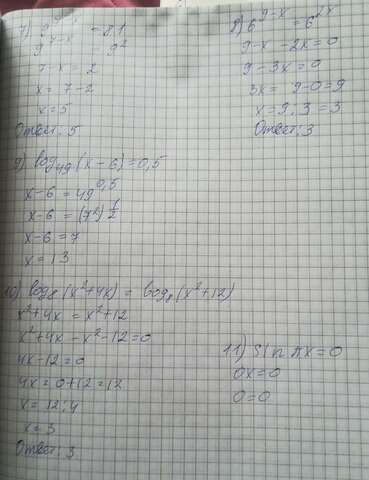 7) 9^{7-x} = 81
9^{7-x} = 9^2
7-x = 2
x = 7-2
x = 5
Ответ: 5
8) 6^{9-x} = 6^{2x}
9-x-2x=0
9-3x=0
3x= 9-0=9
x=9:3=3
Ответ: 3
9) log_{49}(x-6)=0,5
x-6 = 49^{0,5}
x-6 = (7^2)^{\frac{1}{2}}
x-6=7
x=13
10) log_8(x^2+4x) = log_8(x^2+12)
x^2+4x = x^2+12
x^2+4x-x^2-12=0
4x-12=0
4x=0+12=12
x=12:4
x=3
Ответ: 3
11) Sin πx=0
0x=0
0=0